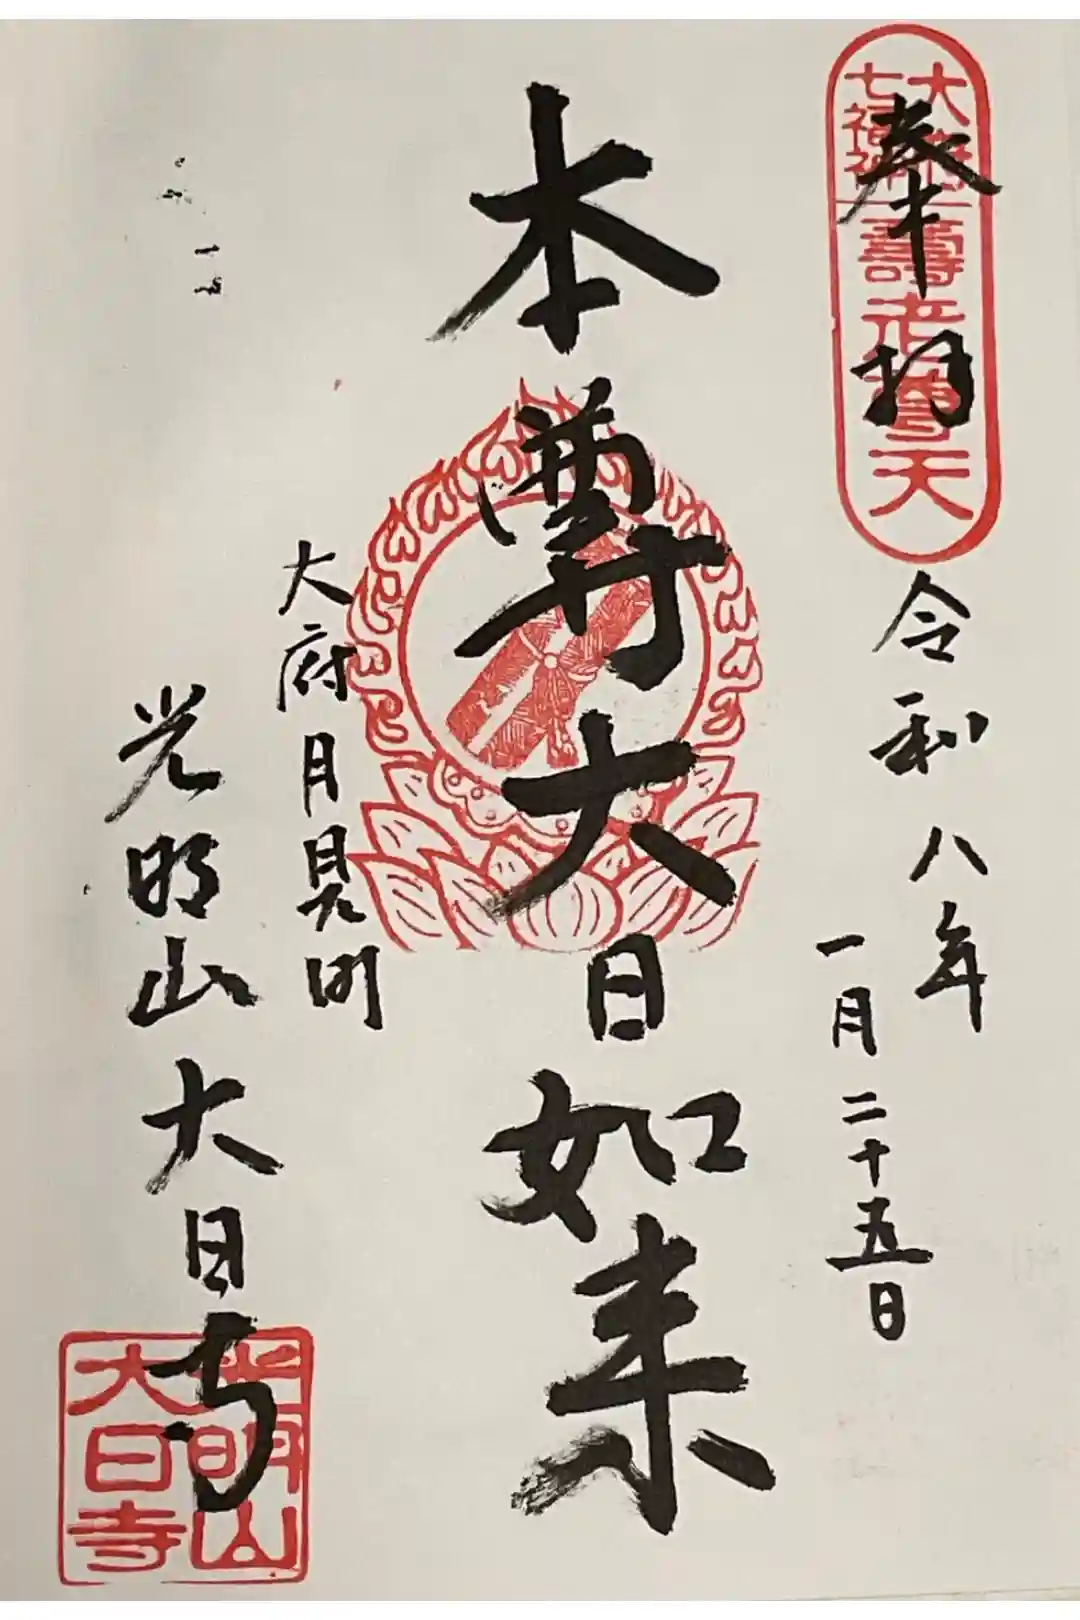 奉拝
大府
七福神
壽老尊天
令和八年
一月二十五日
本尊大日如来
大府月見町
光明山大日寺
光明山
大日寺